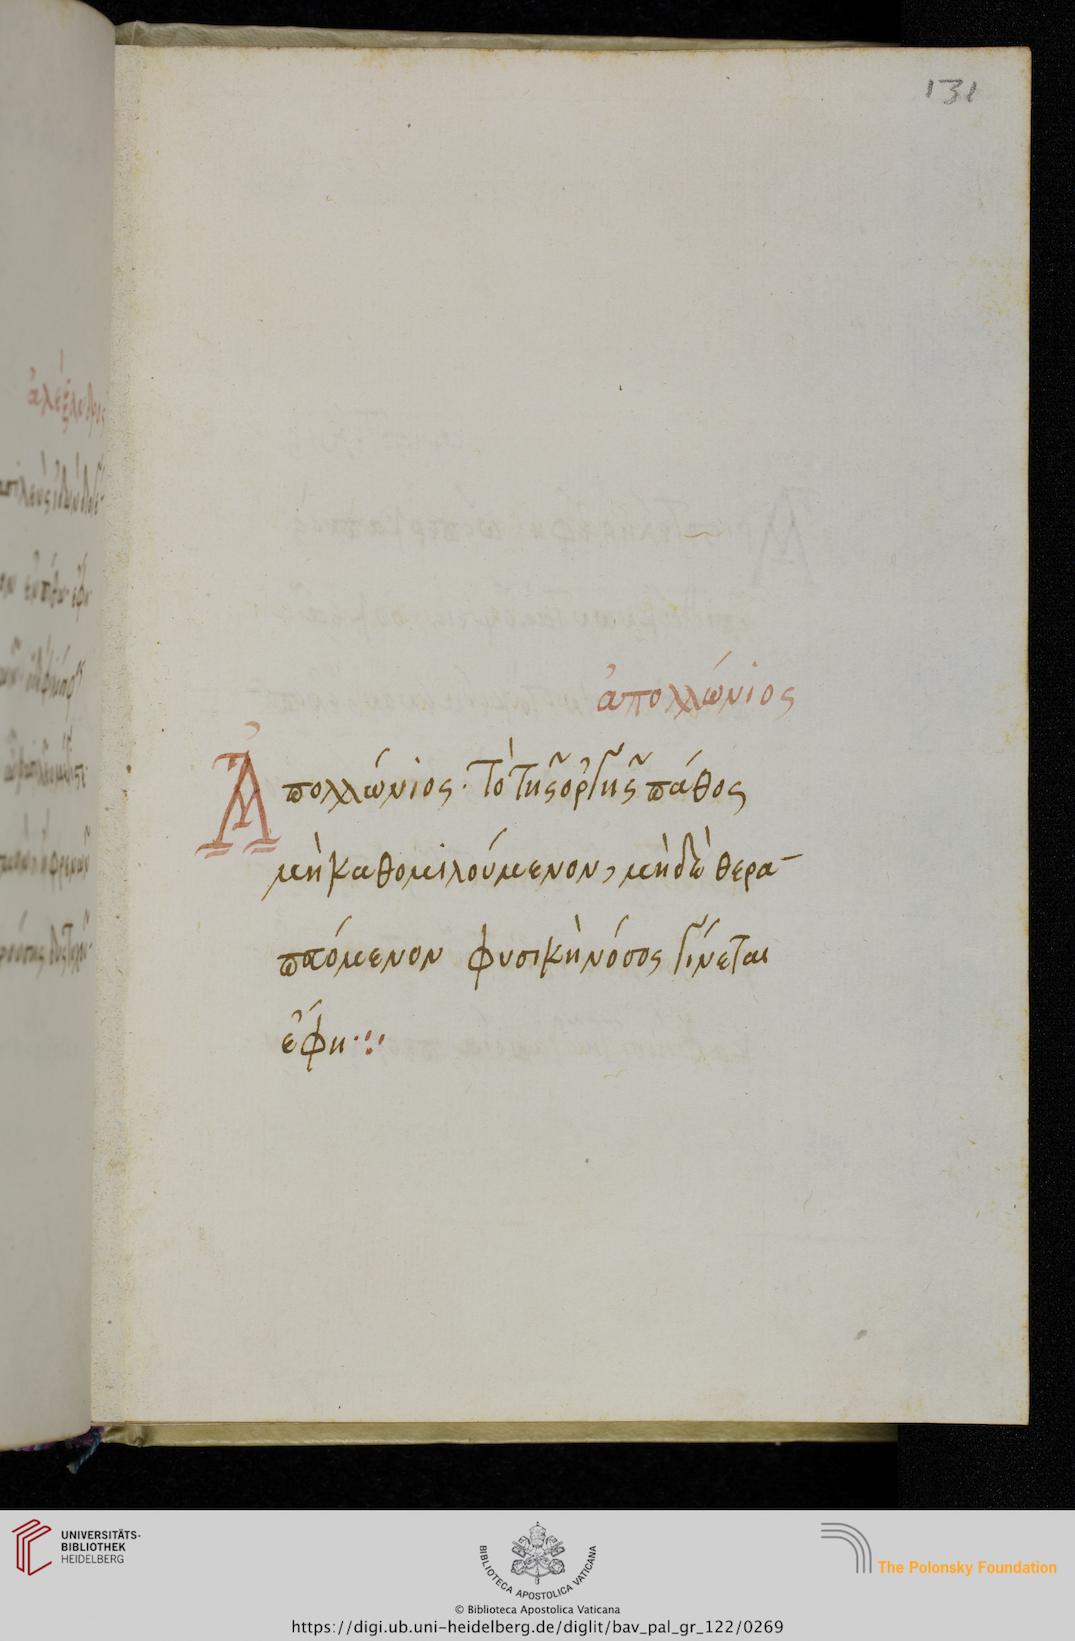 131
ἀπολλώνιος
Ἀπολλώνιος· τὸ τῆς ὀργῆς πάθος
μὴ καθομιλούμενον, μηδὲ θερα-
πευόμενον φυσικὴ νόσος γίνεται
ἔφη·
UNIVERSITÄTS-
BIBLIOTHEK
HEIDELBERG
BIBLIOTECA APOSTOLICA VATICANA
The Polonsky Foundation
© Biblioteca Apostolica Vaticana
https://digi.ub.uni-heidelberg.de/diglit/bav_pal_gr_122/0269